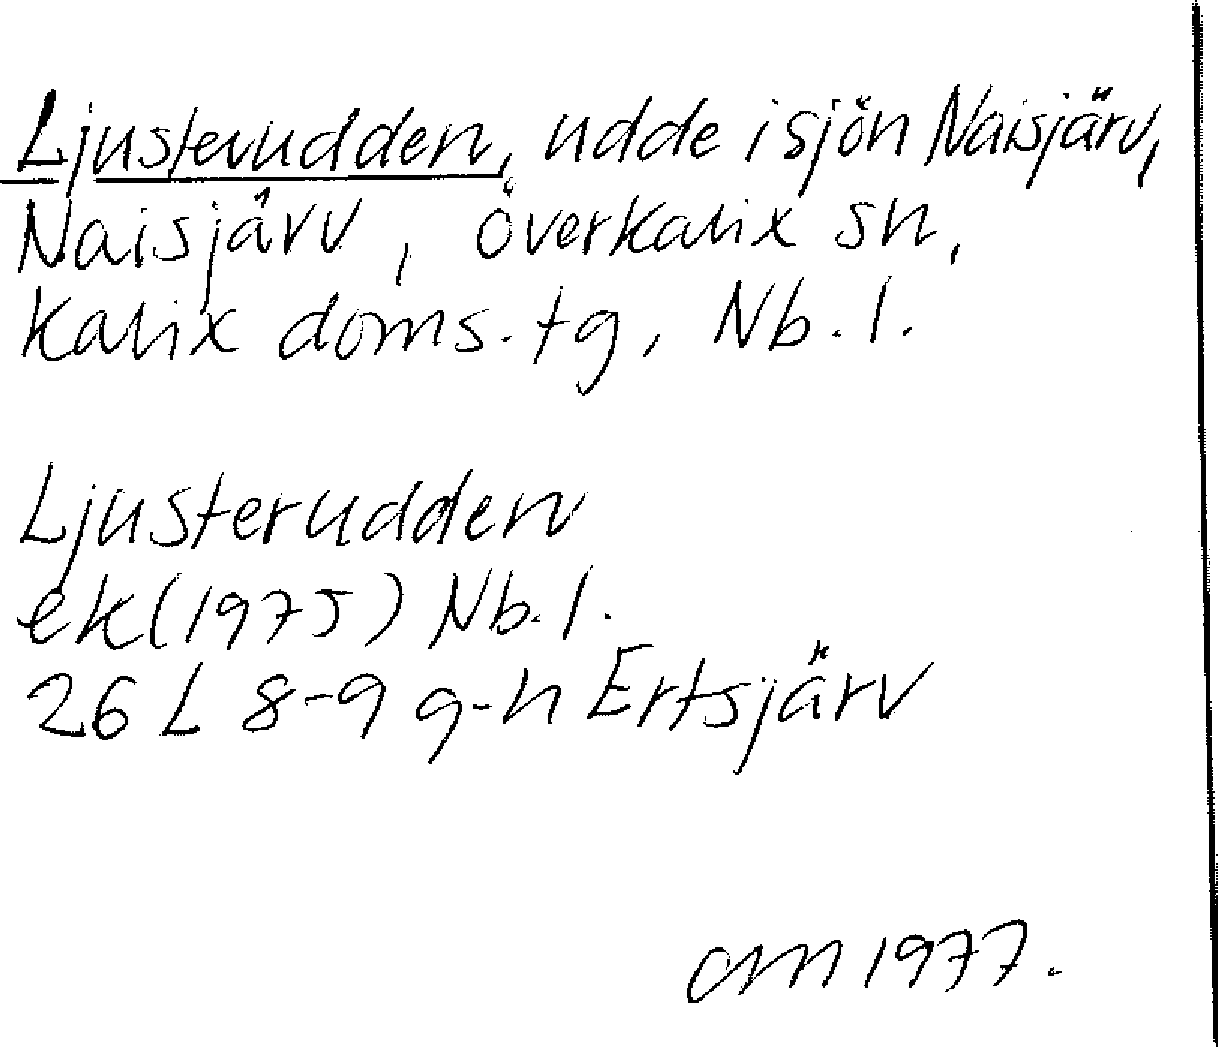 Ljusterudden, udde i sjön Naisjärv,
Naisjärv, Överkalix sn,
Kalix doms.tg, Nb.l.
Ljusterudden
ek(1975) Nb.l.
26 L 8-9 g-h Ertsjärv
am 1977.